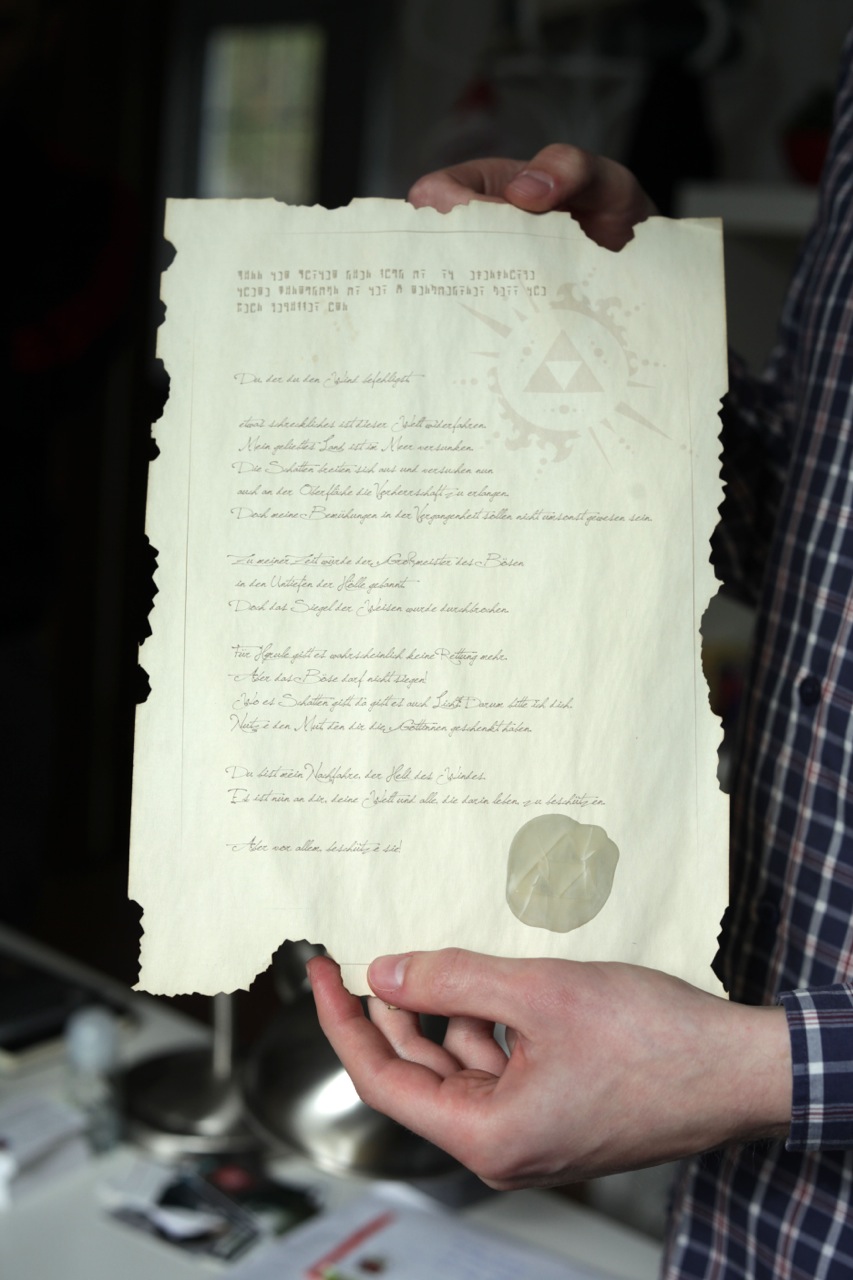 Du der du den Wind befehligst
etwas schreckliches ist dieser Welt widerfahren.
Mein geliebtes Land ist im Meer versunken.
Die Schatten breiten sich aus und versuchen nun
auch an der Oberfläche die Vorherrschaft zu erlangen.
Doch meine Bemühungen in der Vergangenheit sollen nicht umsonst gewesen sein.
Zu meiner Zeit wurde der Großmeister des Bösen
in den Untiefen der Hölle gebannt
Doch das Siegel der Weisen wurde durchbrochen.
Für Hyrule gibt es wahrscheinlich keine Rettung mehr.
Aber das Böse darf nicht siegen!
Wo es Schatten gibt da gibt es auch Licht. Darum bitte ich dich.
Nutze den Mut den dir die Göttinnen geschenkt haben.
Du bist mein Nachfahre, der Held des Windes.
Es ist nun an dir, deine Welt und alle, die darin leben, zu beschützen.
Aber vor allem, beschütze sie!